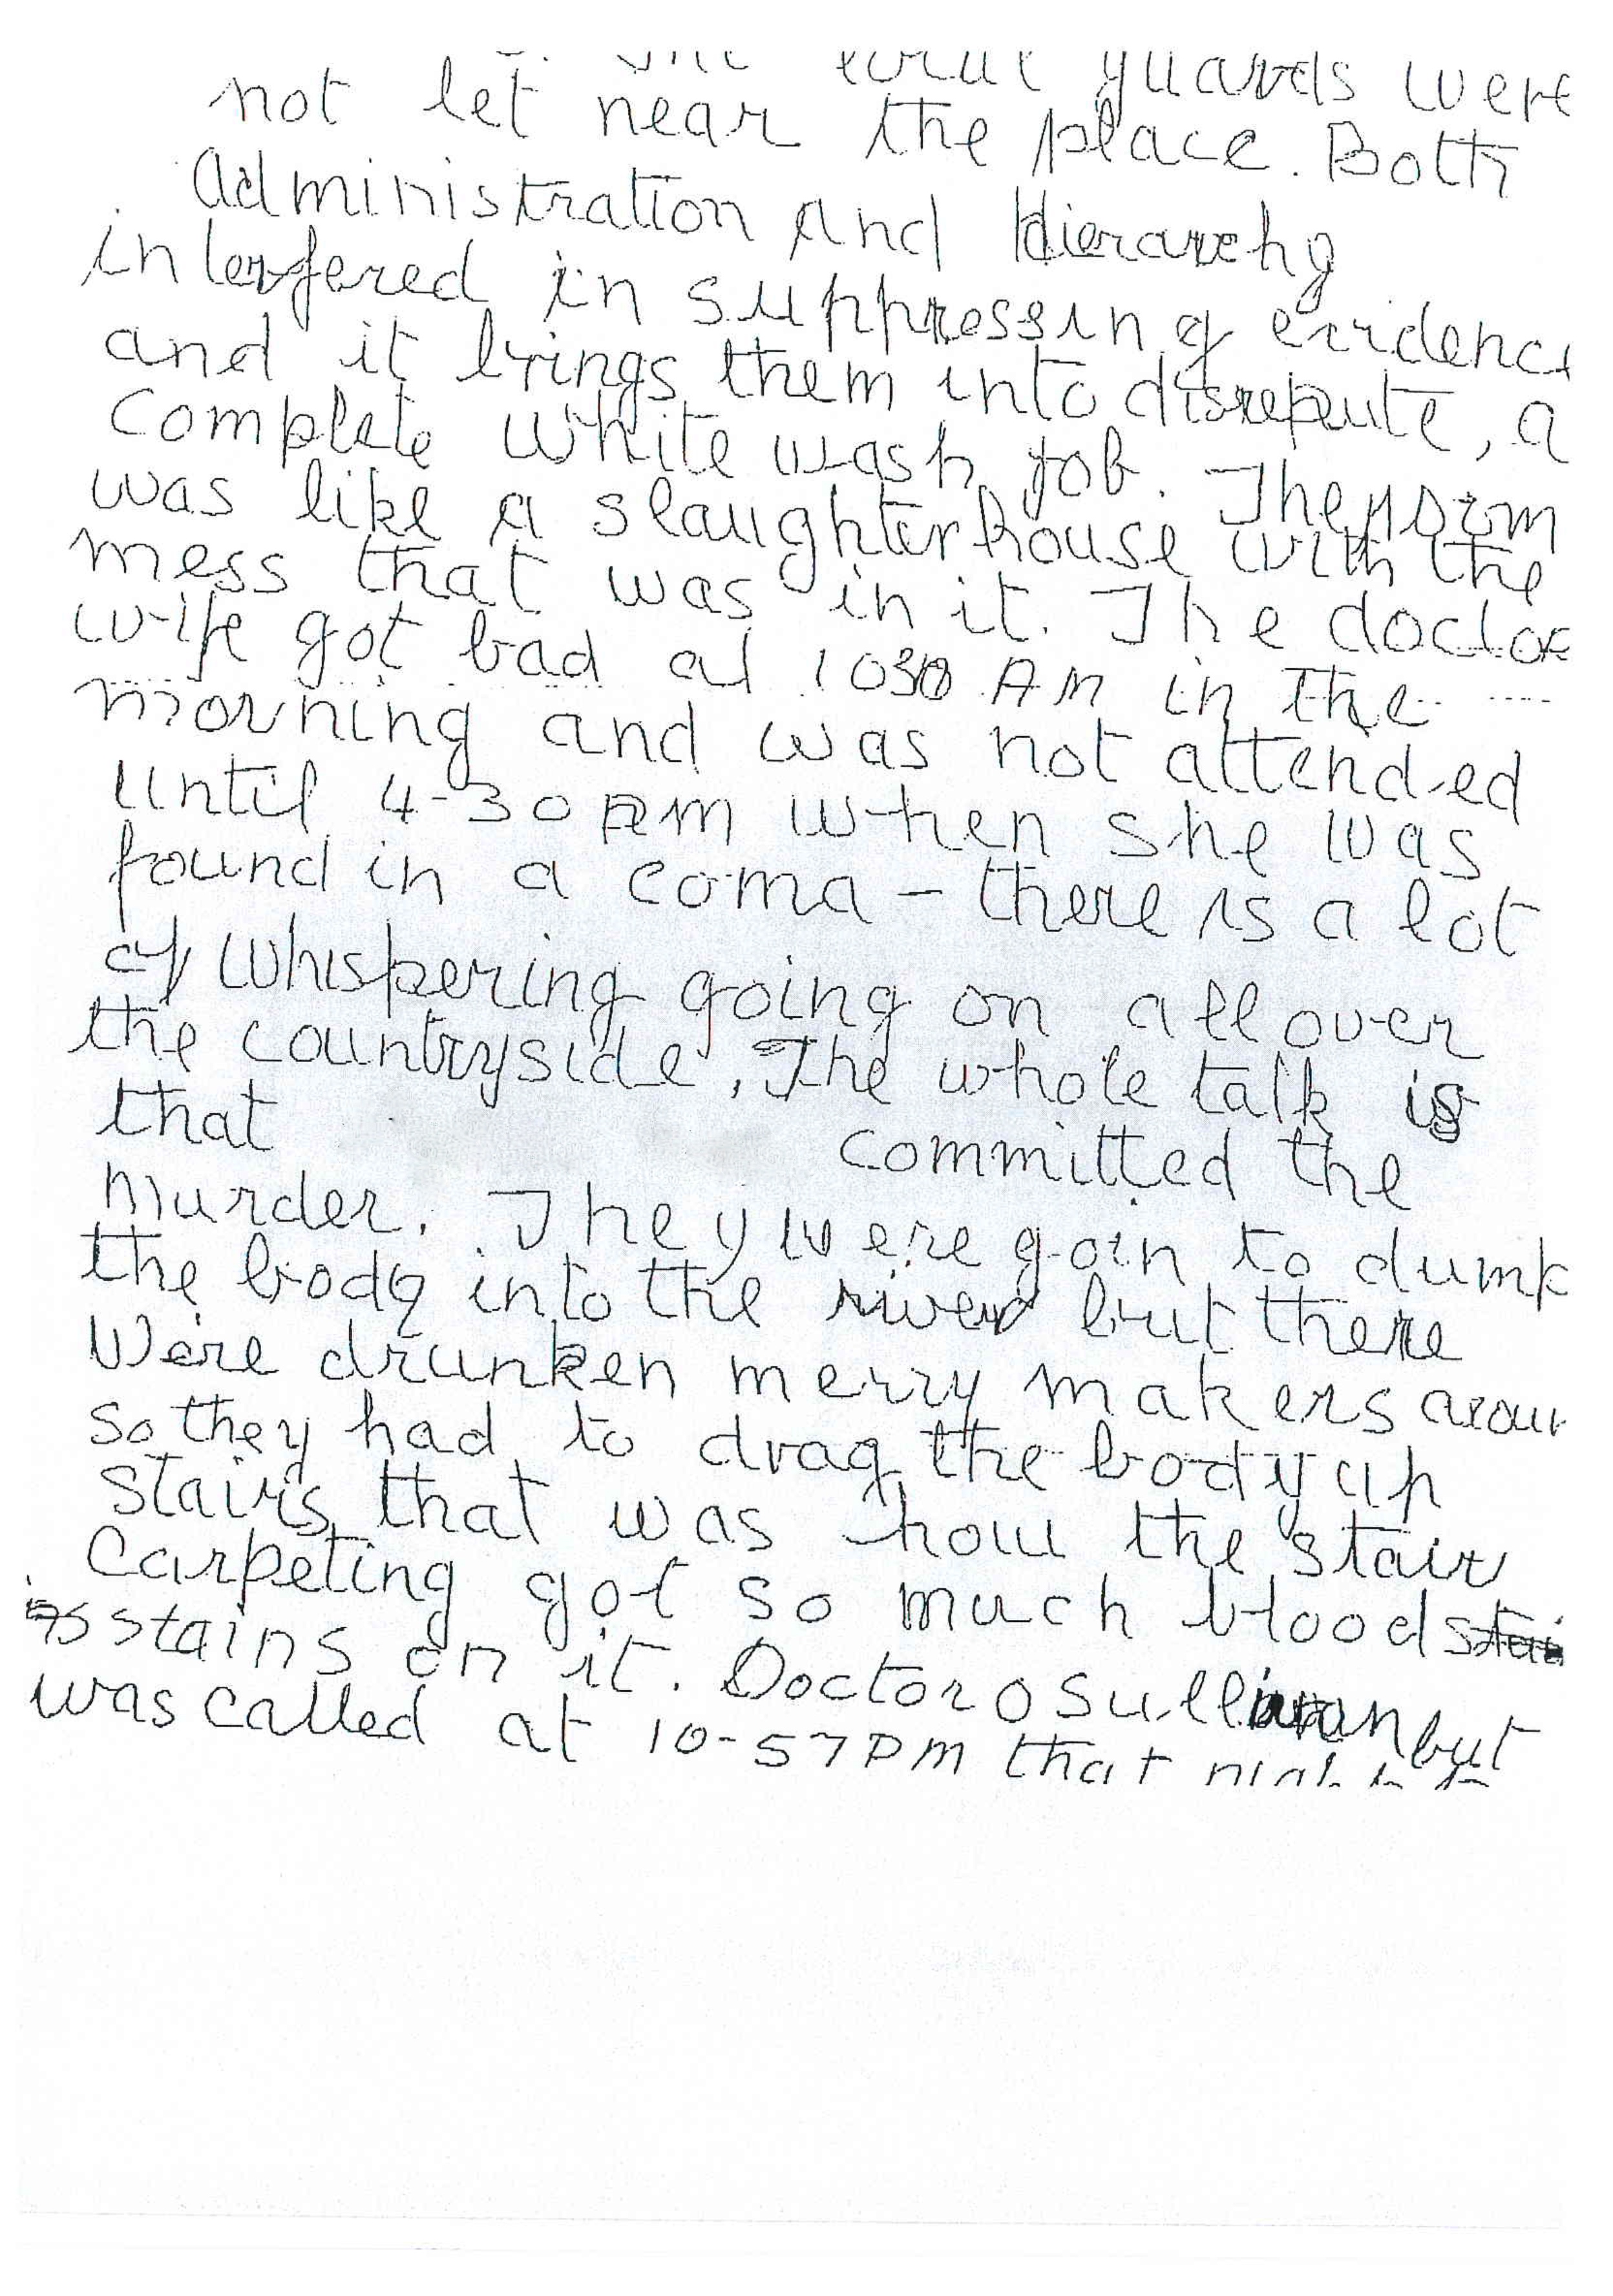 guards were
not let near the place. Both
Administration and Hierarchy
interfered in suppressing evidenc
and it brings them into disrepute, a
complete white wash job. The room
was like a slaughterhouse with the
mess that was in it. The doctor
wife got bad at 1030 AM in the
morning and was not attended
until 4-30 PM when she was
found in a coma - there is a lot
of whispering going on all over
the countryside. The whole talk is
that committed the
murder. They were goin to dump
the body into the river but there
were drunken merry makers aroun
so they had to drag the body up
stairs that was how the stair
carpeting got so much blood
stains on it. Doctor O Sullivan but
was called at 10-57 PM that